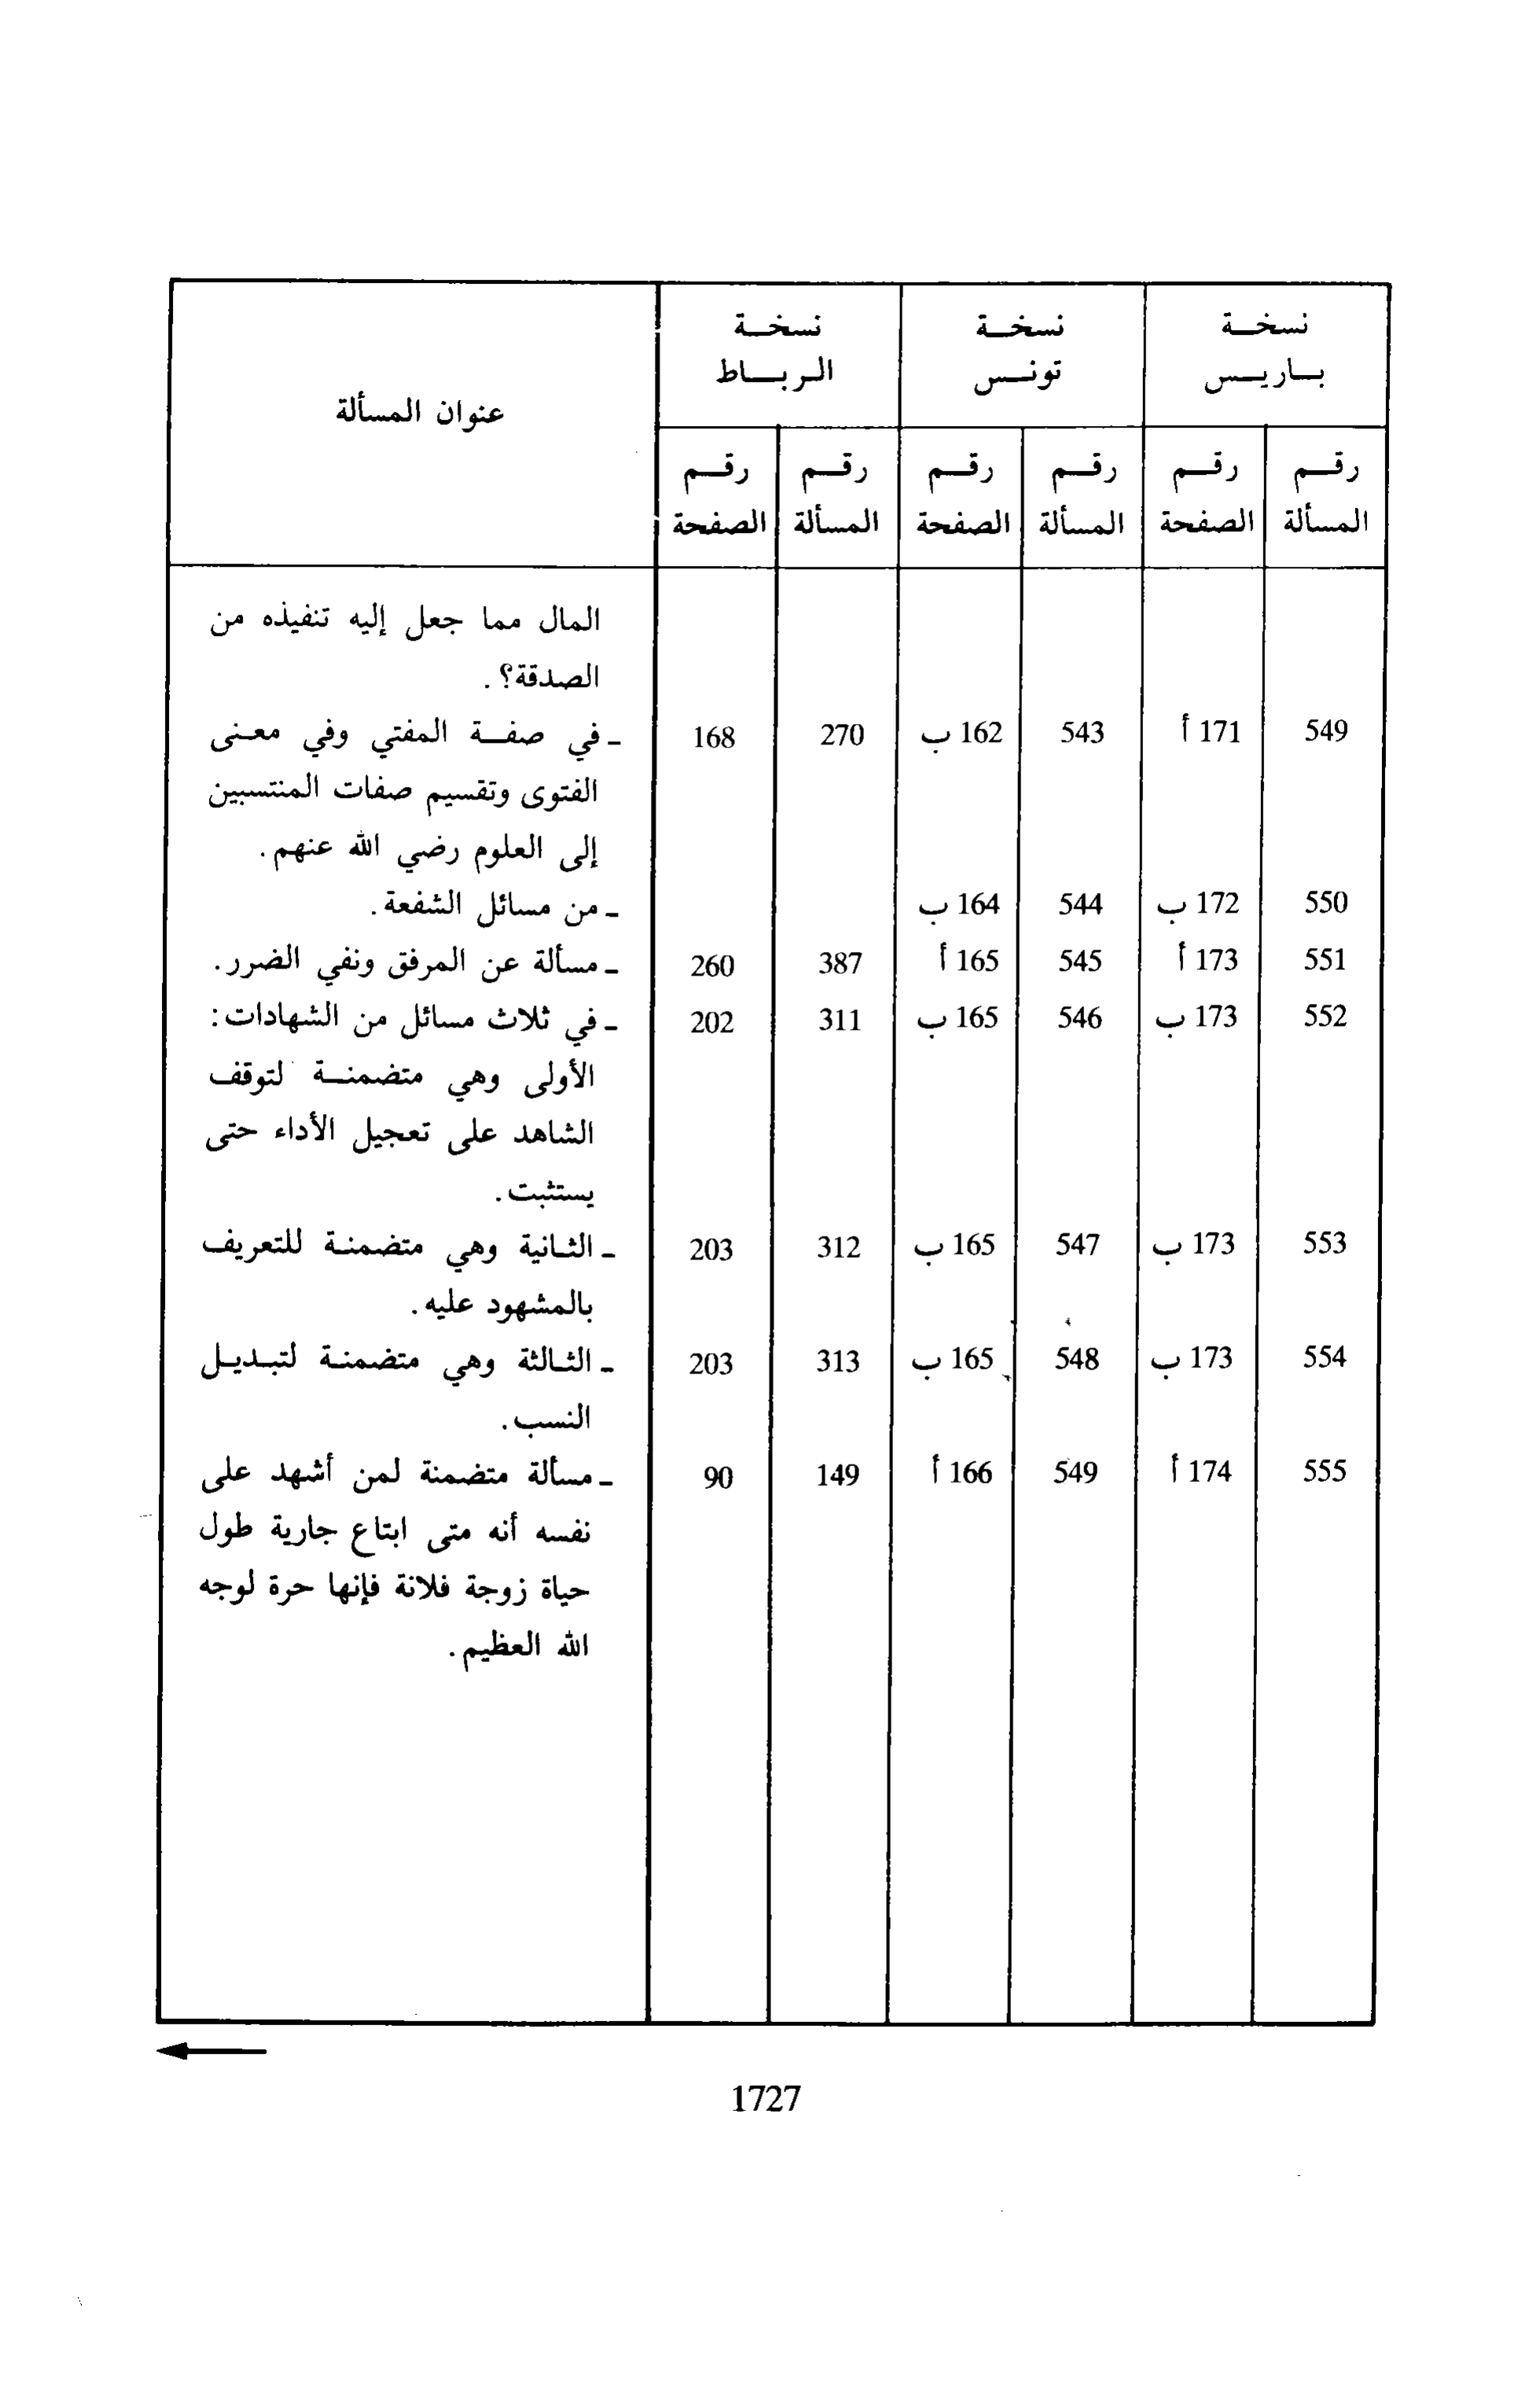 نسخة نسخة نسخة
باريس تونس الرباط
عنوان المسألة
رقم رقم رقم رقم رقم رقم
المسألة الصفحة المسألة الصفحة المسألة الصفحة
المال مما جعل إليه تنفيذه من
الصدقة؟.
549 171 أ 543 162 ب 270 168 - في صفة المفتي وفي معنى
الفتوى وتقسيم صفات المنتسبين
إلى العلوم رضي الله عنهم.
550 172 ب 544 164 ب - من مسائل الشفعة.
551 173 أ 545 165 أ 387 260 - مسألة عن المرفق ونفي الضرر.
552 173 ب 546 165 ب 311 202 - في ثلاث مسائل من الشهادات:
الأولى وهي متضمنة لتوقف
الشاهد على تعجيل الأداء حتى
يستثبت.
553 173 ب 547 165 ب 312 203 - الثانية وهي متضمنة للتعريف
بالمشهود عليه.
554 173 ب 548 165 ب 313 203 - الثالثة وهي متضمنة لتبديل
النسب.
555 174 أ 549 166 أ 149 90 - مسألة متضمنة لمن أشهد على
نفسه أنه متى ابتاع جارية طول
حياة زوجة فلانة فإنها حرة لوجه
الله العظيم.
1727